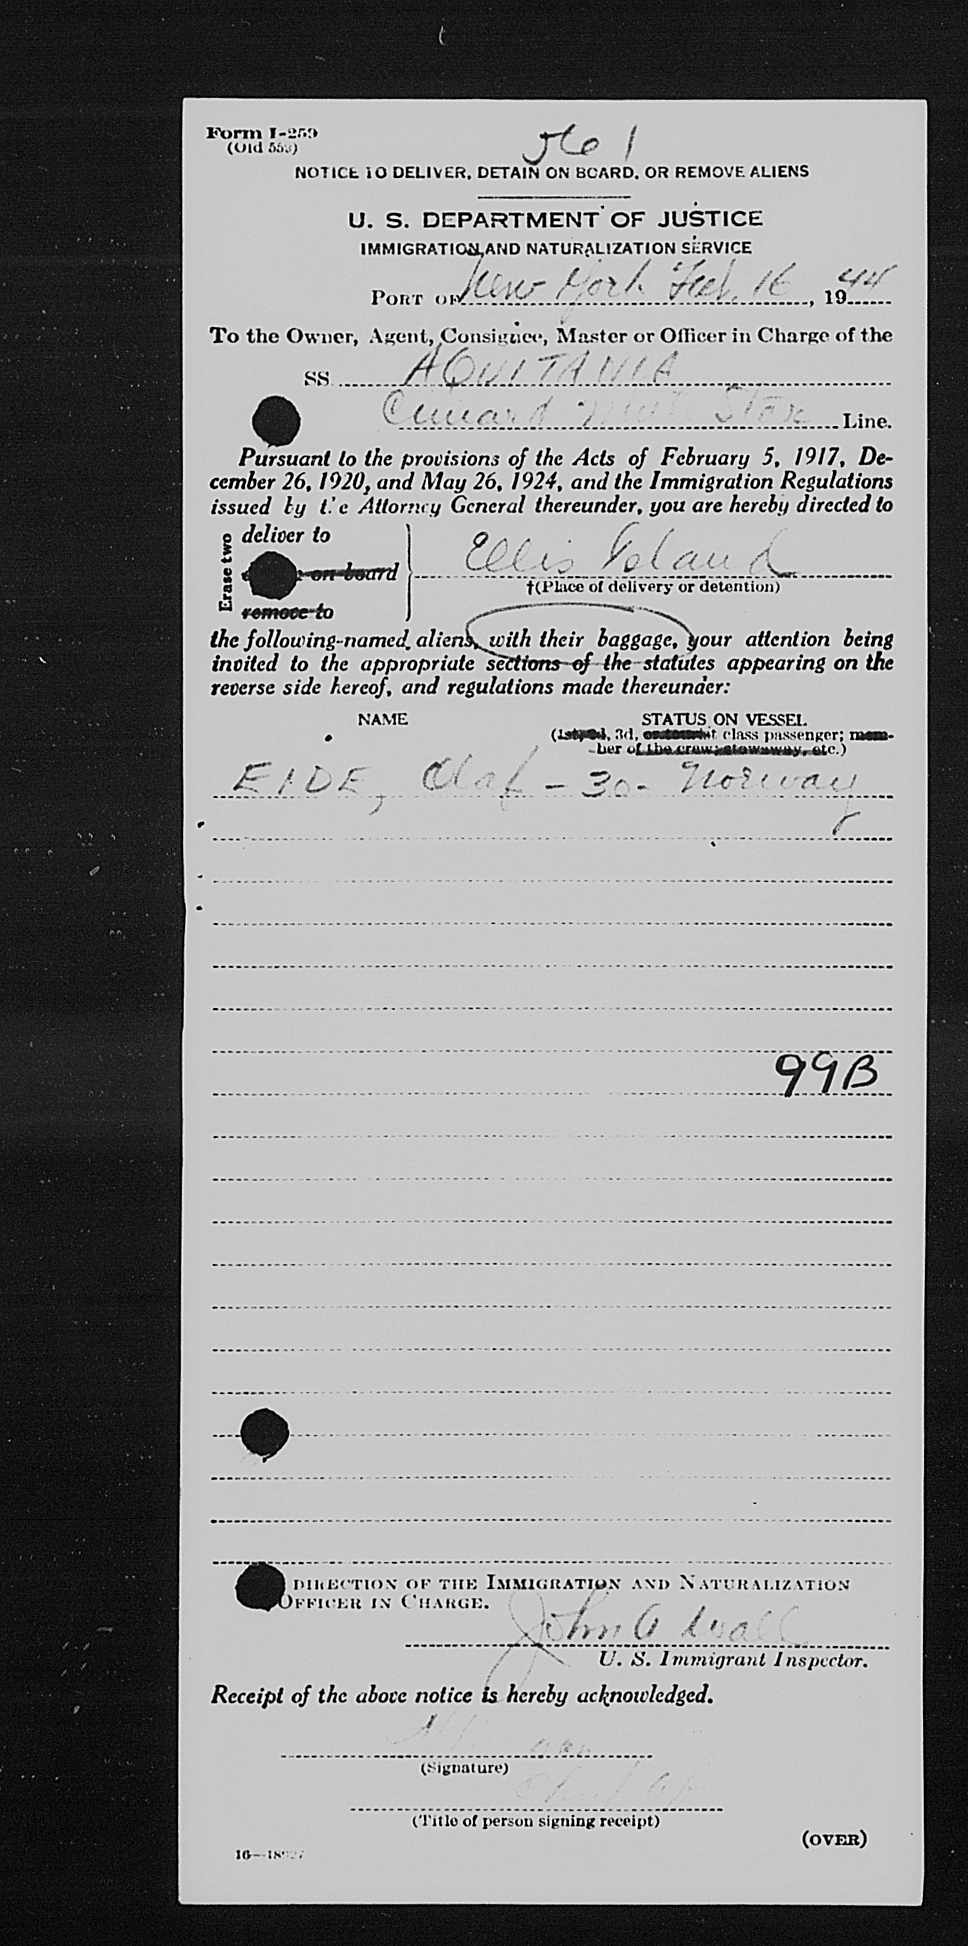 Form I-259
(Old 553)
561
NOTICE TO DELIVER, DETAIN ON BOARD, OR REMOVE ALIENS
U. S. DEPARTMENT OF JUSTICE
IMMIGRATION AND NATURALIZATION SERVICE
PORT OF New York Feb. 16, 1944
To the Owner, Agent, Consignee, Master or Officer in Charge of the
SS. AQUITANIA
Cunard White Star Line.
Pursuant to the provisions of the Acts of February 5, 1917, De-
cember 26, 1920, and May 26, 1924, and the Immigration Regulations
issued by the Attorney General thereunder, you are hereby directed to
Erase two
deliver to
on board
remove to
Ellis Island
†(Place of delivery or detention)
the following-named aliens, with their baggage, your attention being
invited to the appropriate sections of the statutes appearing on the
reverse side hereof, and regulations made thereunder:
NAME STATUS ON VESSEL
(1st, 2d, 3d, or tourist class passenger; mem-
ber of the crew; stowaway, etc.)
EIDE, Olaf - 30 - Norway
99B
DIRECTION OF THE IMMIGRATION AND NATURALIZATION
OFFICER IN CHARGE.
John A Wall
U. S. Immigrant Inspector.
Receipt of the above notice is hereby acknowledged.
(Signature)
(Title of person signing receipt)
(OVER)